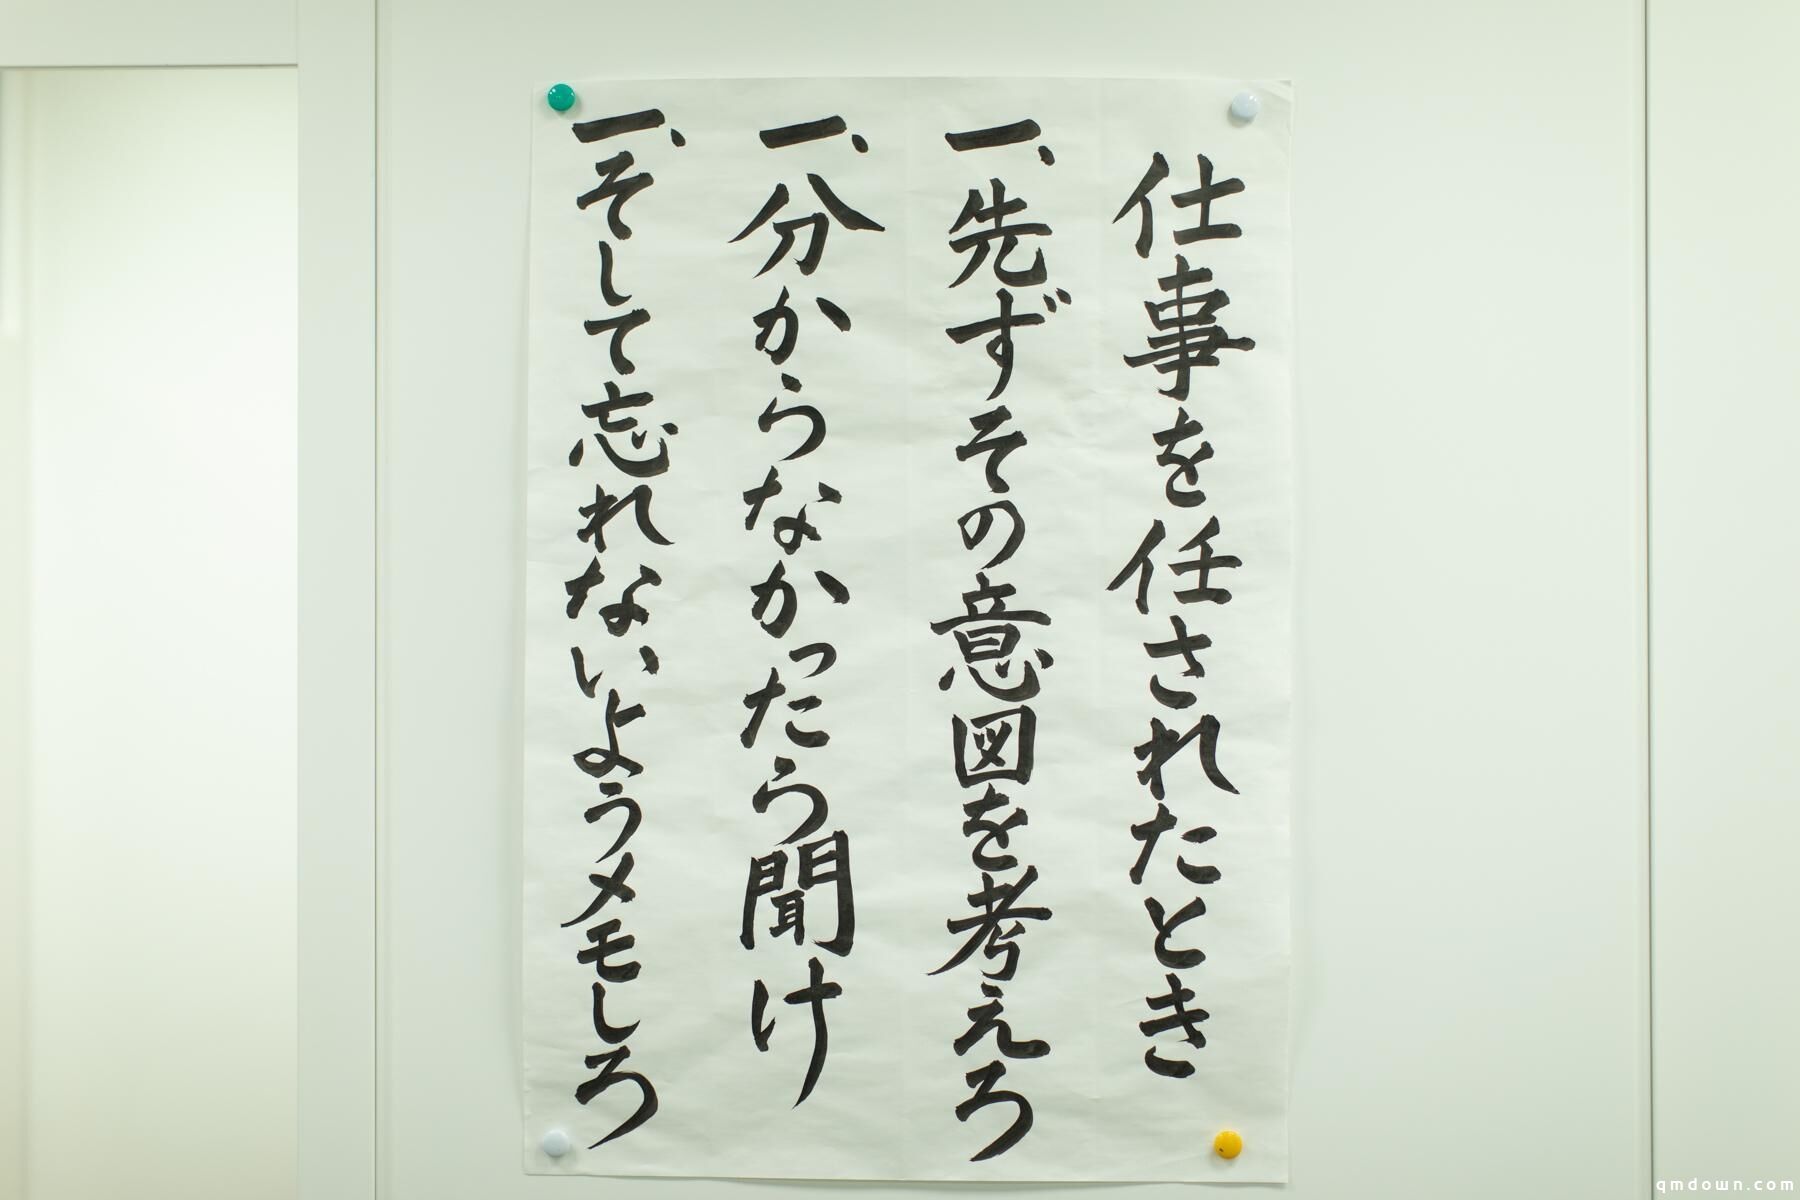 仕事を任されたとき
一、先ずその意図を考えろ
一、分からなかったら聞け
一、そして忘れないようメモしろ
qmdown.com